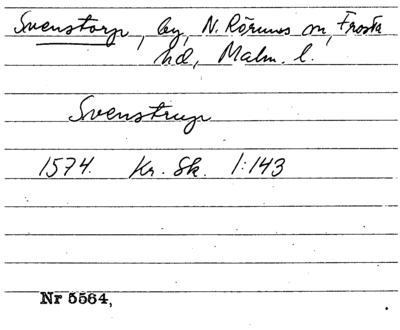 Svenstorp, by, N. Rörums sn, Frosta
hd, Malm. l.
Svenstrup
1574. Kr. Sk. 1:143
Nr 5564,